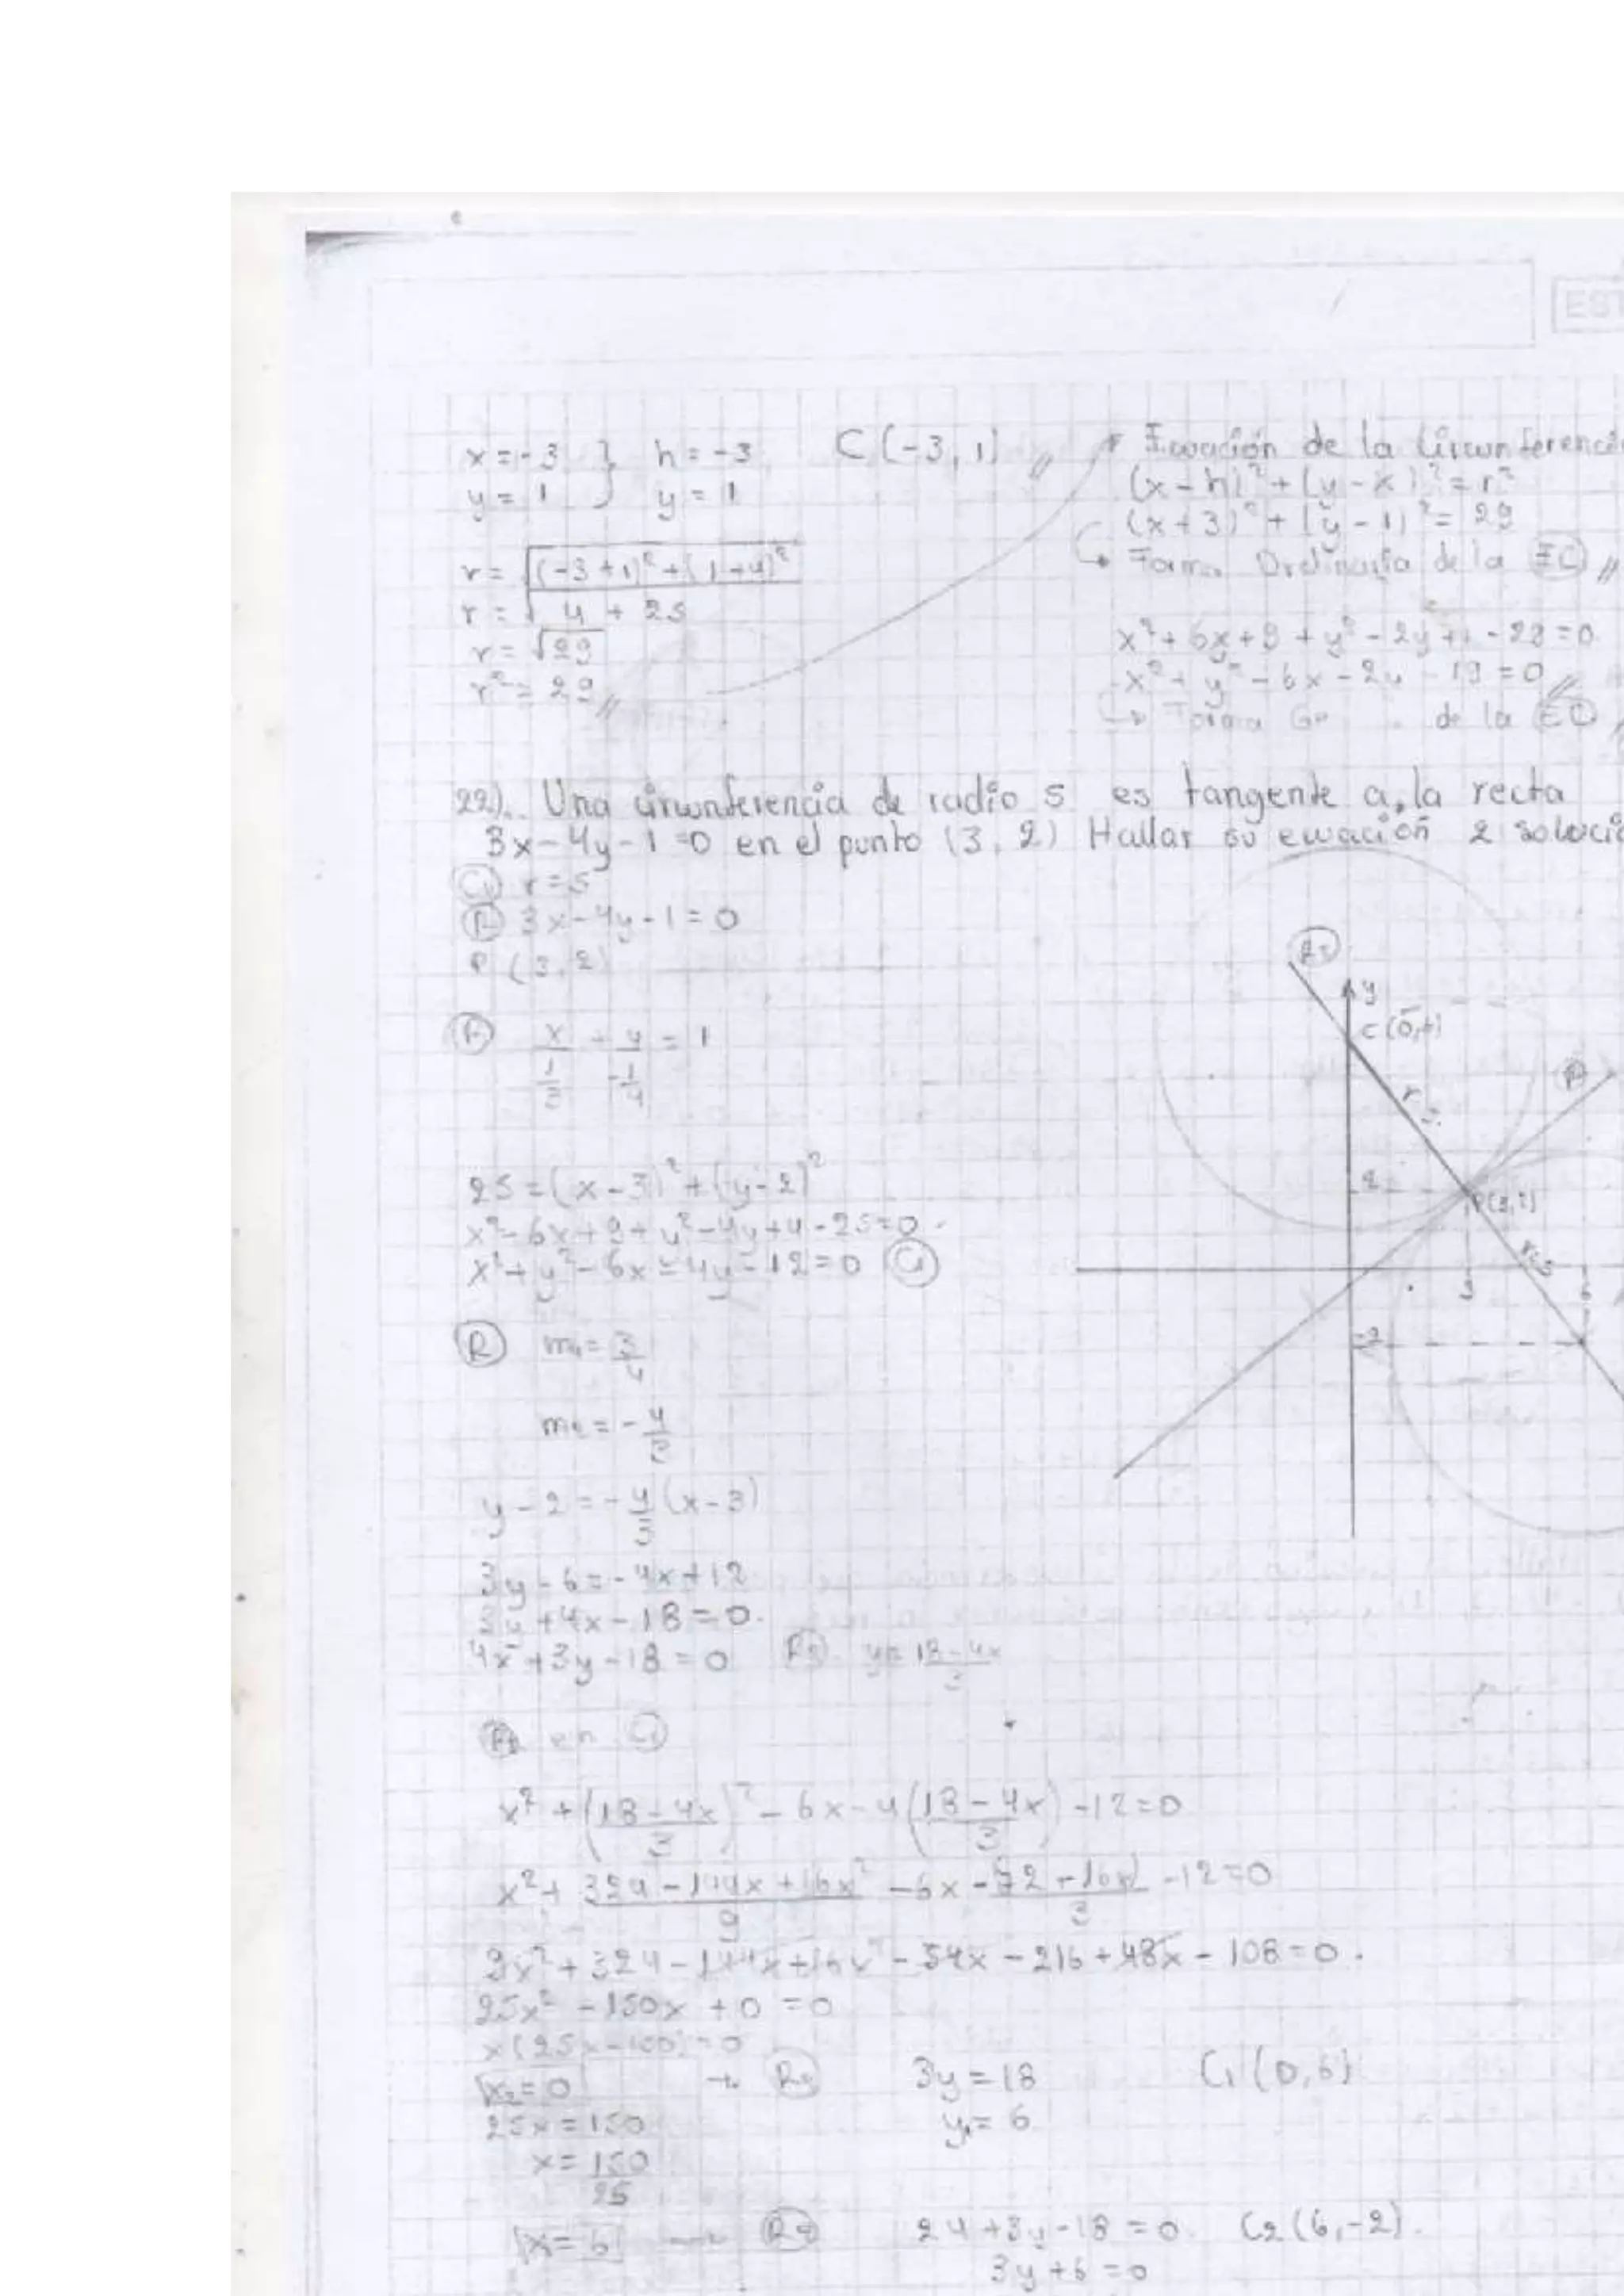 EST
x = -3 } h = -3 C(-3, 1) //
y = 1 y = 1
r = √(-3+1)² + (1+4)²
r = √4 + 25
r = √29
r² = 29 //
Ecuación de la Circunferencia
(x-h)² + (y-k)² = r²
(x+3)² + (y-1)² = 29
Forma Ordinaria de la EC //
x² + 6x + 9 + y² - 2y + 1 - 29 = 0
x² + y² - 6x - 2y - 19 = 0 //
Forma Ge de la EC //
22). Una circunferencia de radio 5 es tangente a la recta
3x - 4y - 1 = 0 en el punto (3, 2) Hallar su ecuación 2 soluci
C1 r = 5
R 3x - 4y - 1 = 0
P (3, 2)
R x/(1/3) + y/(-1/4) = 1
25 = (x-3)² + (y-2)²
x² - 6x + 9 + y² - 4y + 4 - 25 = 0
x² + y² - 6x - 4y - 12 = 0 C1
R m1 = 3/4
m2 = -4/3
y - 2 = -4/3 (x-3)
3y - 6 = -4x + 12
3y + 4x - 18 = 0
4x + 3y - 18 = 0 R2 y = (18-4x)/3
R2 en C1
x² + ((18-4x)/3)² - 6x - 4((18-4x)/3) - 12 = 0
x² + (324 - 144x + 16x²)/9 - 6x - (72-16x)/3 - 12 = 0
9x² + 324 - 144x + 16x² - 54x - 216 + 48x - 108 = 0.
25x² - 150x + 0 = 0
x(25x - 150) = 0
x1 = 0 → R2 3y = 18 C1 (0,6)
25x = 150 y1 = 6
x = 150/25
x = 6 → R2 24 + 3y - 18 = 0 C2 (6, -2)
3y + 6 = 0
R2
y
R
2
P(3,2)
r=5
3
6
-2